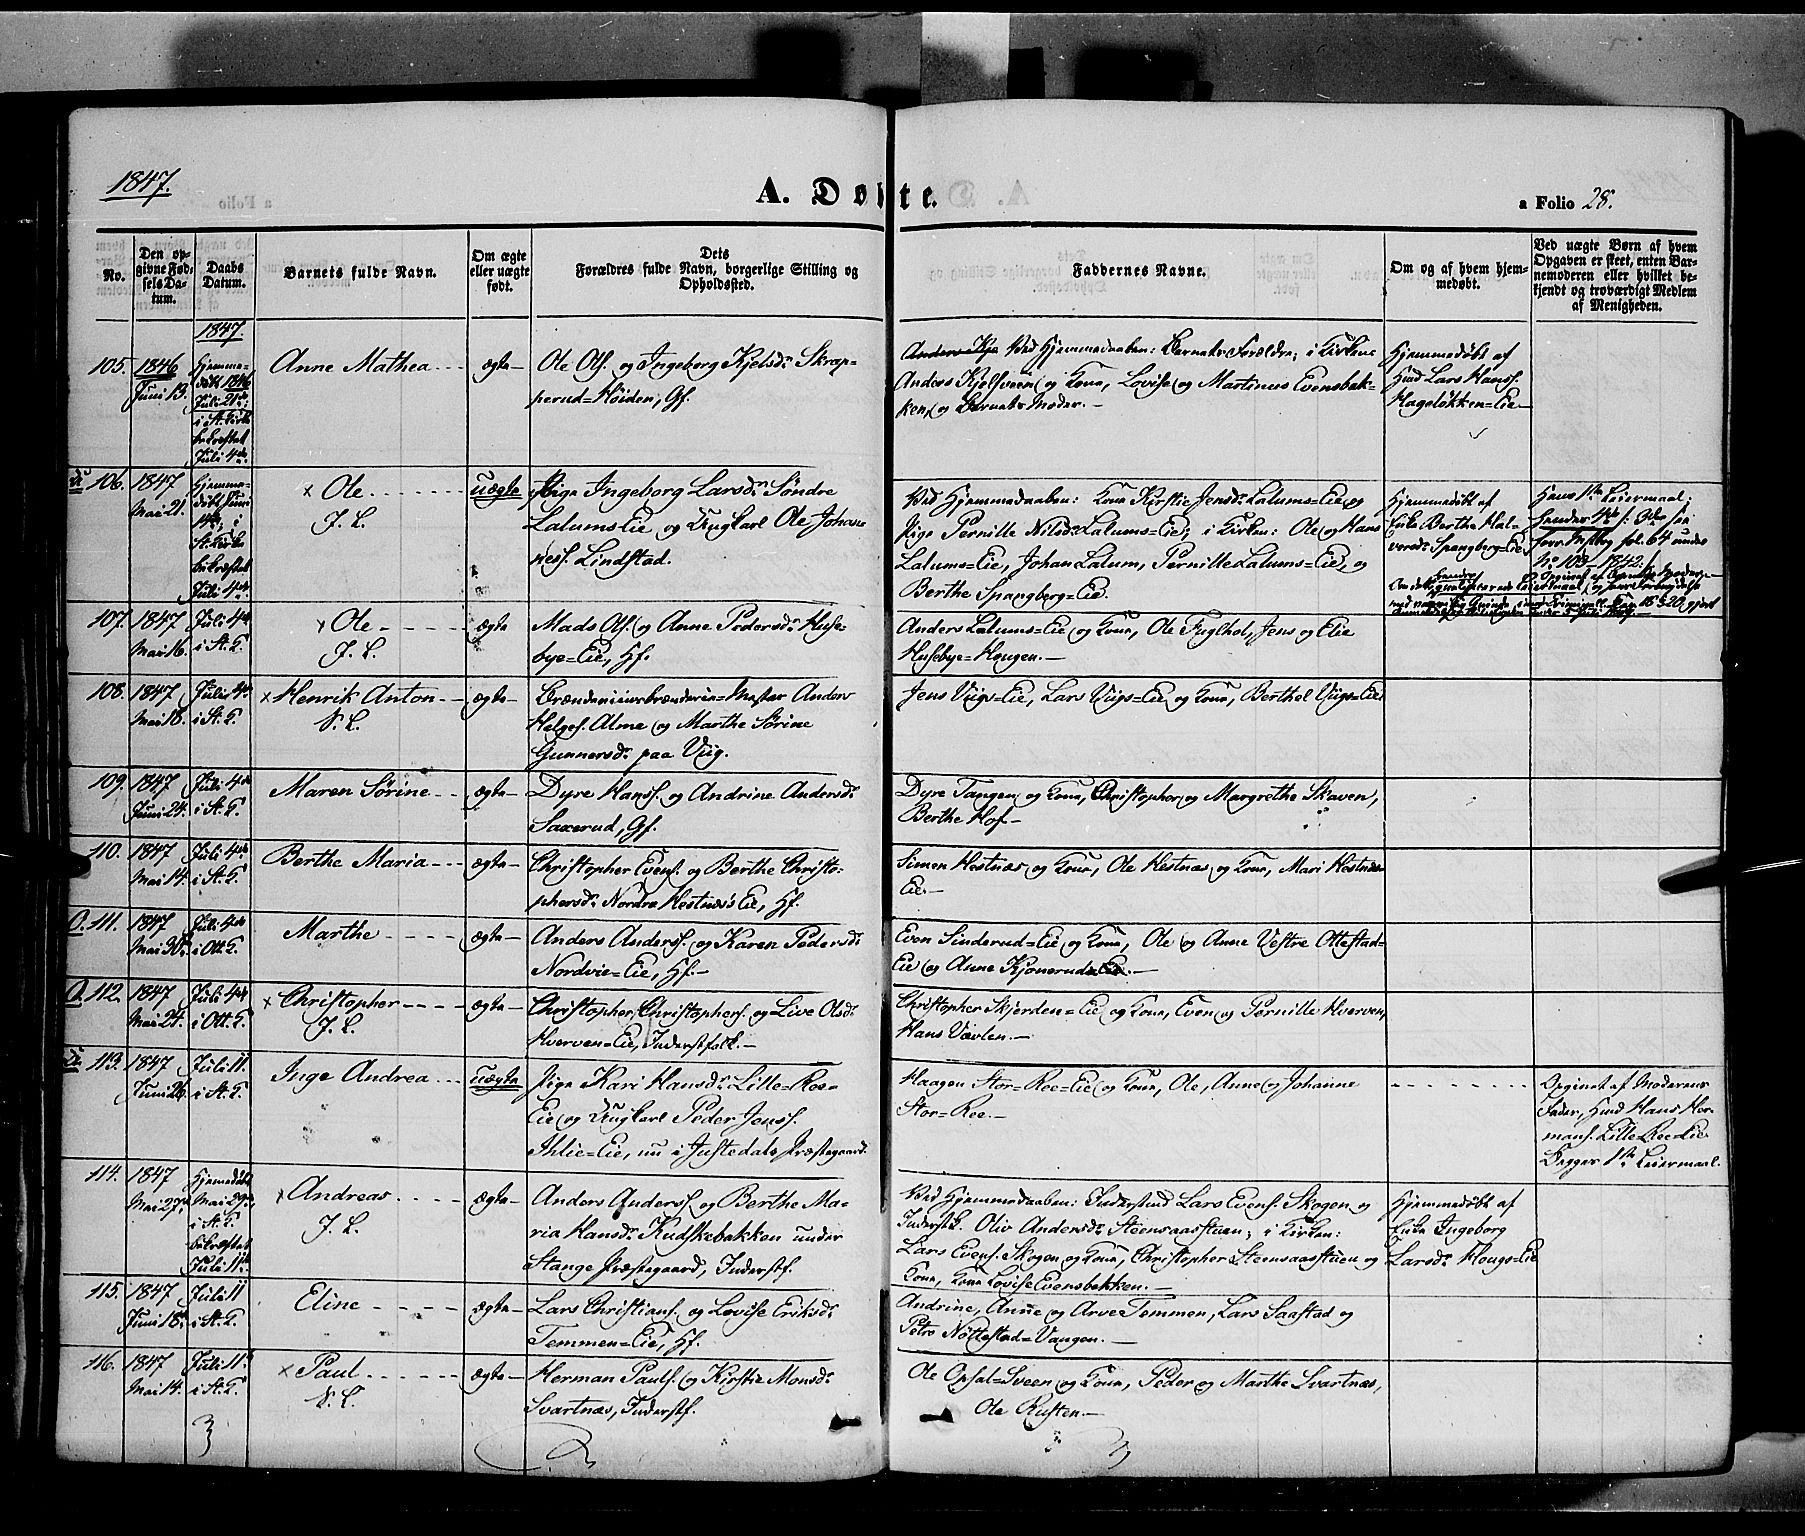 1847.
A. Døbte.
a Folio 28.
No.
Den op-
givne Fød-
sels Da-
tum.
Daabs
Datum.
Barnets fulde Navn.
Om ægte
eller uægte
født.
Dets
Forældres fulde Navn, borgerlige Stilling og
Opholdssted.
Faddernes Navne.
Om og af hvem hjem-
medøbt.
Ved uægte Børn af hvem
Opgaven er skeet, enten Bar-
nemoderen eller hvilket be-
kjendt og troværdigt Medlem
af Menigheden.
1847.
105. 1846
Juni 13.
Hjemme-
døbt 1846
Juli 21de;
i St. Kirke
bekræftet
Juli 4de
Anne Mathea
ægte
Ole Ols. og Ingeborg Kjelsdr. Skrap-
perud=Høiden, Gf.
Ved Hjemmedaaben: Barnets Forældre; i Kirken:
Anders Kjelsveen og Kone, Lovise og Martinus Evensbak-
ken, og Barnets Moder.
Hjemmedøbt af
Hmd Lars Hanss.
Hageløkken=Eie
106. 1847
Mai 21.
Hjemme-
døbt Juni
14de; i
St. Kirke
bekræftet
Juli 4de
x Ole
J. L.
uægte
Pige Ingeborg Larsdr. Søndre
Lalums Eie og Ungkarl Ole Johan-
ness. Lindstad.
Ved Hjemmedaaben: Kone Kirstie Jensdr. Lalums=Eie og
Pige Pernille Nilsdr. Lalums=Eie; i Kirken: Ole og Hans
Lalums=Eie, Johan Lalum, Pernille Lalums=Eie, og
Berthe Spangberg=Eie.
Hjemmedøbt af
Enke Berthe Hal-
vorsdr. Spangberg=Eie
Hans 1ste Leiermaal;
hendes 4de
No 103 – 1842.
107. 1847
Mai 16.
Juli 4de
i St. K.
x Ole
J. L.
ægte
Mads Ols. og Anne Pedersdr. Huse-
bye=Eie, Hf.
Anders Lalums=Eie og Kone, Ole Fuglhol, Jens og Elie
Husebye=Hougen.
108. 1847
Mai 18.
Juli 4de
i St. K.
x Henrik Anton
N. L.
ægte
Brændeviinsbrænderie=Mester Anders
Helges. Alme og Marthe Sørine
Gunnersdr. paa Viig.
Jens Viigs=Eie, Lars Viigs=Eie og Kone, Berthel Viigs=Eie
109. 1847
Juni 24.
Juli 4de
i St. K.
Maren Sørine
ægte
Dyre Hanss. og Andrine Andersdr.
Saxerud, Gf.
Dyre Tangen og Kone, Christopher og Margrethe Skaven,
Berthe Hof
110. 1847
Mai 14.
Juli 4de
i St. K.
Berthe Maria
ægte
Christopher Evens. og Berthe Christo-
phersdr. Nordre Hestnæs's Eie, Hf.
Simen Hestnæs og Kone, Ole Hestnæs og Kone, Mari Hestnæs=
Eie
O. 111. 1847
Mai 30te
Juli 4de
i Ott. K.
Marthe
ægte
Anders Anderss. og Karen Pedersdr.
Nordvie=Eie, Hf.
Even Sinderud=Eie og Kone, Ole og Anne Vestre Ottestad=
Eie og Anne Kjonerud=Eie.
O. 112. 1847
Mai 24.
Juli 4de
i Ott. K.
x Christopher
J. L.
ægte
Christopher Christophers. og Live Olsdr.
Hverven=Eie, Inderstfolk.
Christopher Skjerden=Eie og Kone, Even og Pernille Hverven,
Hans Vævlen.
113. 1847
Juni 26.
Juli 11.
i St. K.
Inge Andrea
uægte
Pige Kari Hansdr. Lille=Roe=
Eie og Ungkarl Peder Jenss.
Ihlie=Eie, nu i Justedals Præstegaard.
Haagen Stor=Roe=Eie og Kone, Ole, Anne og Johanne
Stor=Roe.
Opgivet af Moderens
Fader, Hmd Hans Her-
mans. Lille Roe=Eie
Begges 1ste Leiermaal.
114. 1847
Mai 27de
Hjemmedøbt
Mai 29de,
i St. K.
bekræftet
Juli 11te
x Andreas
J. L.
ægte
Anders Anderss. og Berthe Ma-
ria Hansdr. Kudskebakken under
Stange Præstegaard, Inderstf.
Ved Hjemmedaaben: Inderstmd Lars Evens. Skogen og
Inderstk. Oliv Andersdr. Steensaasstuen; i Kirken:
Lars Evens. Skogen og Kone, Christopher Steensaasstuen og
Kone, Kone Lovise Evensbakken.
Hjemmedøbt af
Enke Ingeborg
Larsdr. Hougs=Eie
115. 1847
Juni 18de
Juli 11
i St. K.
Eline
ægte
Lars Christians. og Lovise Eriksdr.
Temmen=Eie, Hf.
Andrine, Anne og Arve Temmen, Lars Saastad og
Petro Nøttestad=Vangen.
116. 1847
Mai 14.
Juli 11.
i St. K.
x Paul
N. L.
ægte
Herman Pauls. og Kirstie Monsdr.
Svartnæs, Inderstf.
Ole Opsal=Sveen og Kone, Peder og Marthe Svartnæs,
Ole Rusten.